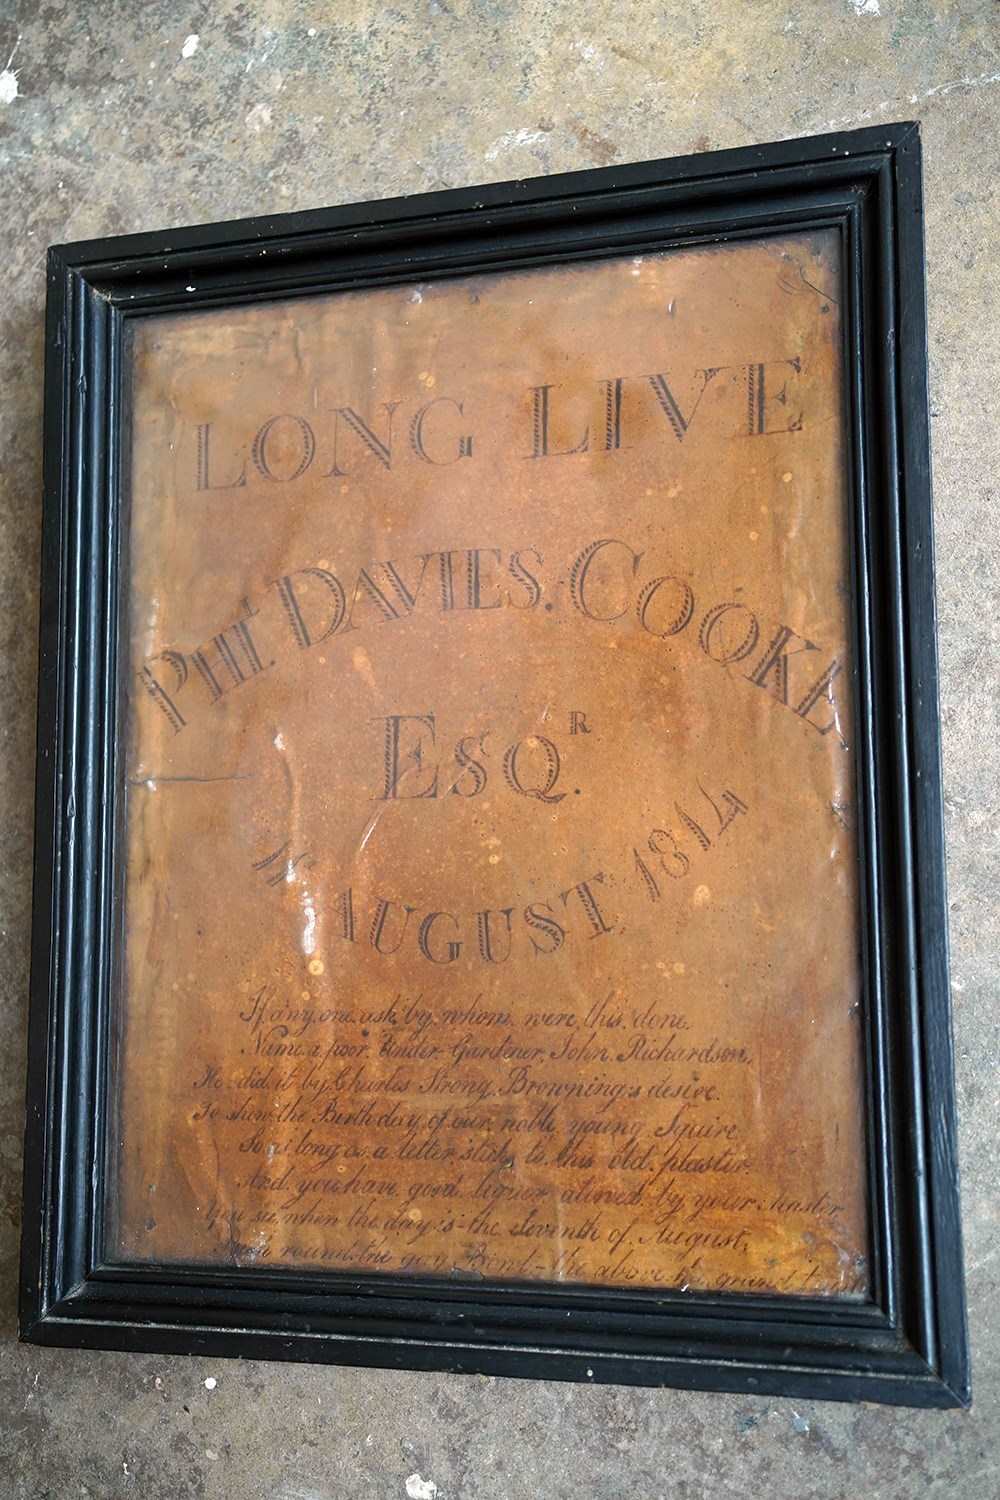 LONG LIVE
PHL. DAVIES. COOKE
ESQ.R
11th AUGUST 1814
If any one ask by whom were this done,
Name a poor Under-Gardener, John Richardson,
He did it by Charles Strong Browning's desire.
To show the Birth-day of our noble young Squire
So as long as a letter sticks to this old plaster.
And you have good liquor alowed by your Master
You see, when the day is the eleventh of August,
round the gay Bowl - the above the grand